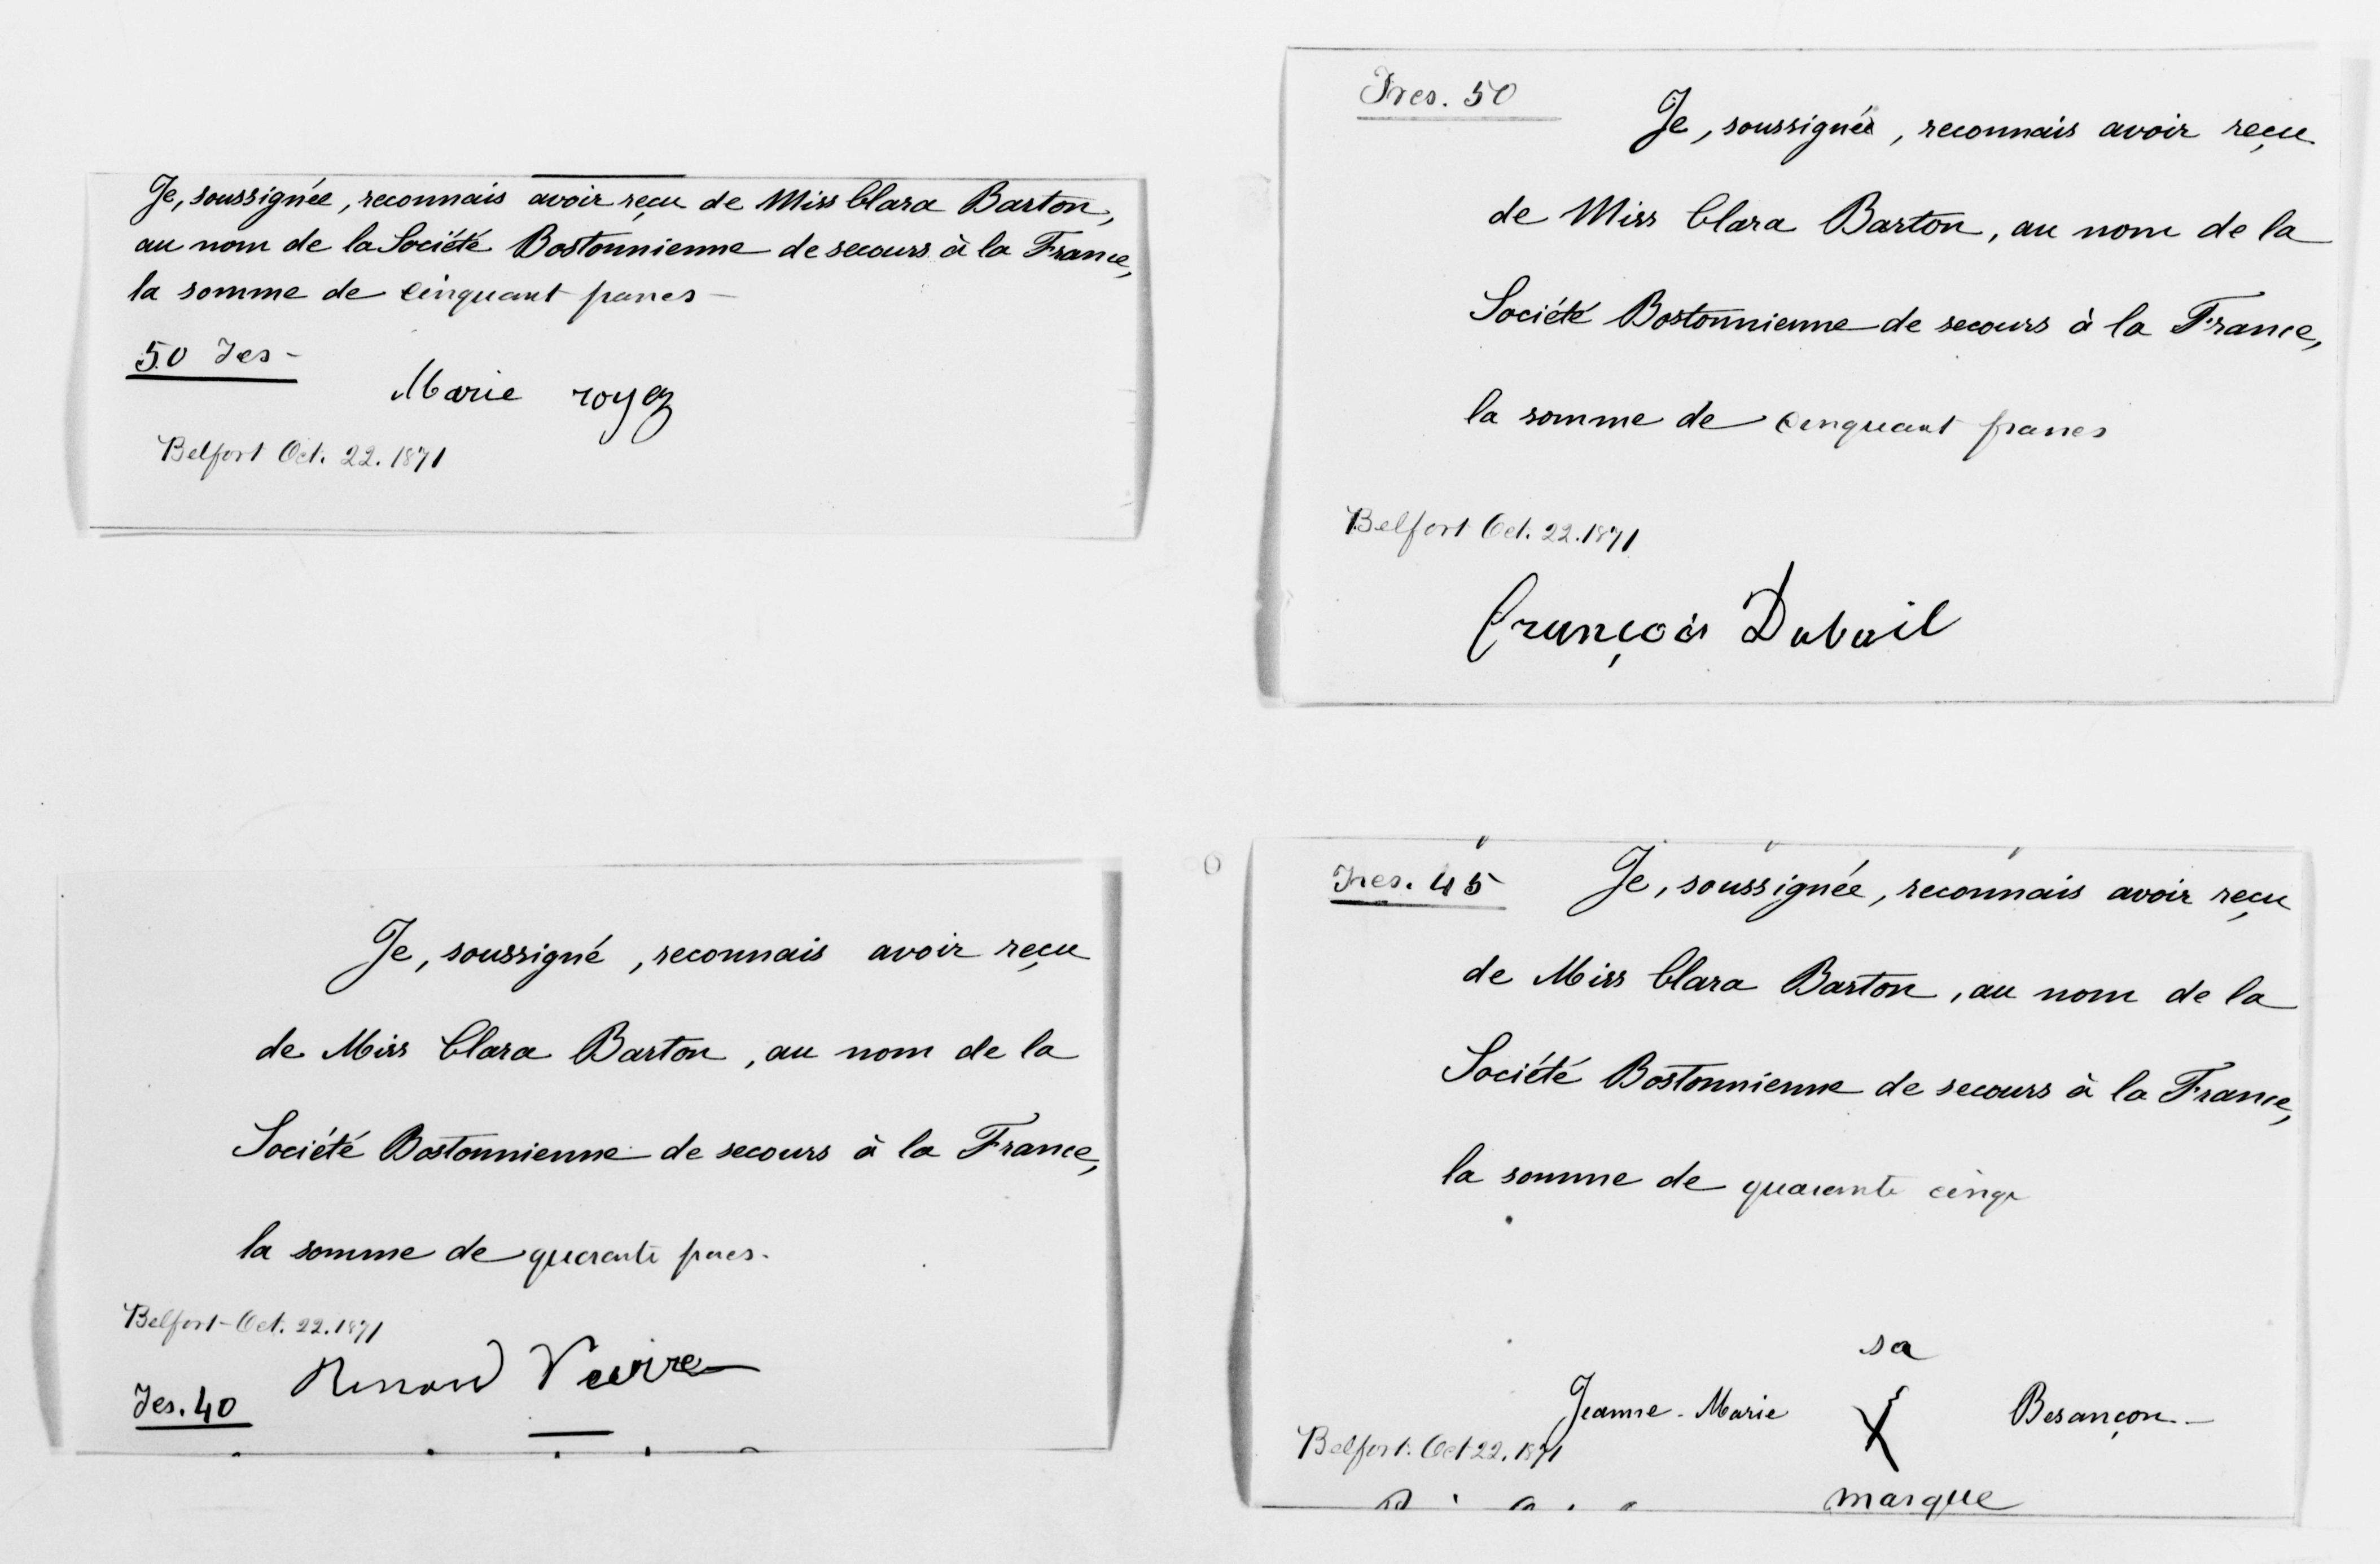 Je, soussignée, reconnais avoir reçu de Miss Clara Barton,
au nom de la Société Bostonnienne de secours à la France,
la somme de cinquant francs
50 Fcs -
Marie royer
Belfort Oct. 22. 1871
Frcs. 50
Je, soussigné, reconnais avoir reçu
de Miss Clara Barton, au nom de la
Société Bostonnienne de secours à la France,
la somme de cinquant francs
Belfort Oct. 22. 1871
François Dubail
Je, soussigné, reconnais avoir reçu
de Miss Clara Barton, au nom de la
Société Bostonnienne de secours à la France,
la somme de quarante fracs.
Belfort - Oct. 22. 1871
Fcs. 40
Frcs. 45
Je, soussignée, reconnais avoir reçu
de Miss Clara Barton, au nom de la
Société Bostonnienne de secours à la France,
la somme de quarante cinq
sa
Jeanne-Marie X Besançon
Belfort. Oct 22. 1871
marque